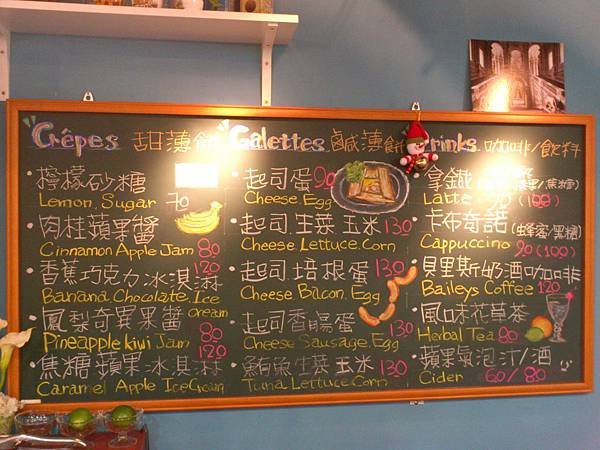 Crêpes 甜薄餅
檸檬砂糖
Lemon. Sugar 70
肉桂蘋果醬
Cinnamon Apple Jam 80
香蕉巧克力冰淇淋 120
Banana Chocolate. Ice cream
鳳梨奇異果醬
Pineapple kiwi Jam 80
焦糖蘋果冰淇淋 120
Caramel Apple Ice Cream
Galettes 鹹薄餅
起司蛋 90
Cheese Egg
起司.生菜.玉米 130
Cheese.Lettuce.Corn
起司.培根蛋 130
Cheese Bacon. Egg
起司香腸蛋 130
Cheese Sausage. Egg
鮪魚生菜玉米 130
Tuna Lettuce.Corn
Drinks. 咖啡/飲料
拿鐵
Latte 90 (100)
卡布奇諾 (蜂蜜/黑糖)
Cappuccino 90 (100)
貝里斯奶酒咖啡
Baileys Coffee 120
風味花草茶
Herbal Tea 80
蘋果氣泡汁/酒
Cider 60/80